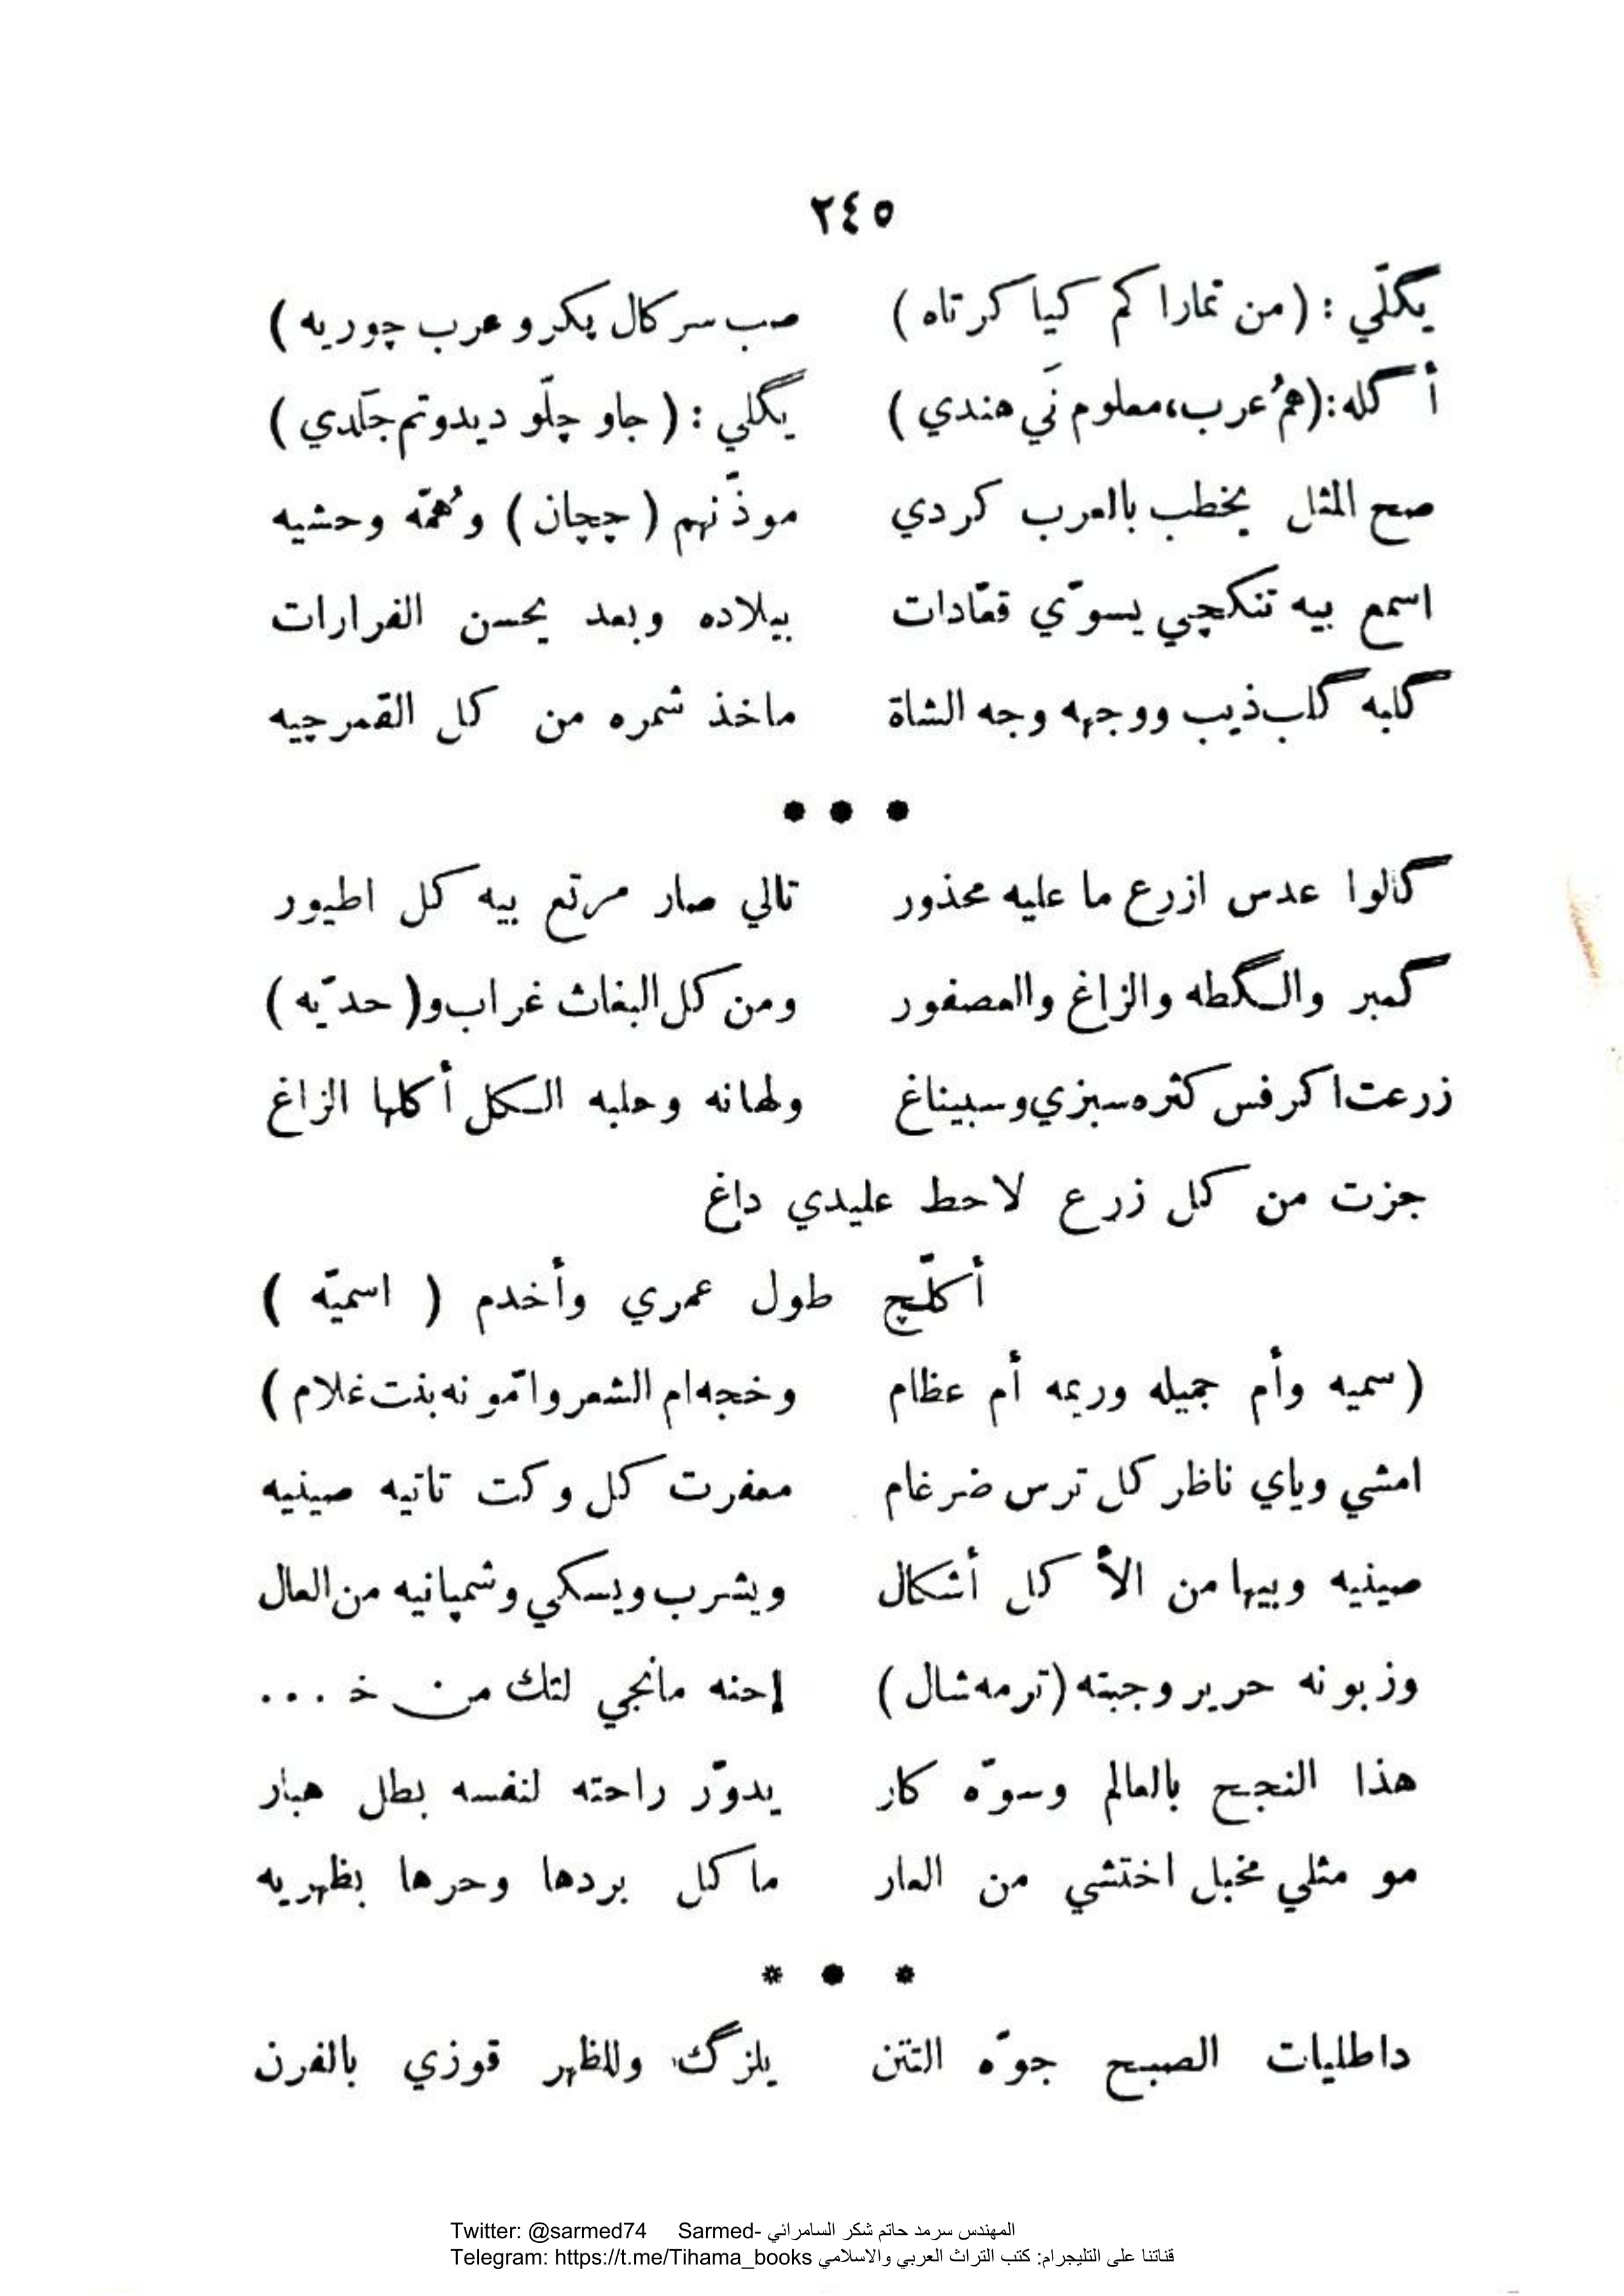 ٢٤٥
يگلّي : ( من تمارا كم كيا كرتاه ) صب سركال پكرو عرب چوريه )
أگله : ( همُ عرب، معلوم نَي هندي ) يگلي : ( جاو چلّو ديدوتم جَلدي )
صح المثل يخطب بالعرب كردي موذّنهم ( چچان ) وُهمّه وحشيه
اسمع بيه تنكچي يسوّي قعّادات ببلاده وبعد يحسن الفرارات
گلبه گلب ذيب ووجهه وجه الشاة ماخذ شمره من كل القمرچيه
● ● ●
گالوا عدس ازرع ما عليه محذور تالي صار مرتع بيه كل اطيور
گمبر والگطه والزاغ والعصفور ومن كل البغاث غراب و( حديّه )
زرعت اكرفس كثره سبزي وسبيناغ ولهانه وحلبه الكل أكلها الزاغ
جزت من كل زرع لاحط عليدي داغ
أكلّچ طول عمري وأخدم ( اسميّه )
( سميه وأم جميله وريمه أم عظام وخجه ام الشعر وامّونه بنت غلام )
امشي وياي ناظر كل ترس ضرغام معفرت كل وكت تاتيه صينيه
صينيه وبيها من الأكل أشكال ويشرب ويسكي وشمپانيه من العال
وزبونه حرير وجبته ( ترمه شال ) إحنه مانجي لتك من خ ...
هذا النجح بالعالم وسوّه كار يدوّر راحته لنفسه بطل هبار
مو مثلي مخبل اختشي من العار ما كل بردها وحرها بظهريه
* ● *
داطليات الصبح جوّه التتن يلزگ وللظهر قوزي بالفرن
Twitter: @sarmed74 Sarmed- المهندس سرمد حاتم شكر السامرائي
Telegram: https://t.me/Tihama_books قناتنا على التليجرام: كتب التراث العربي والاسلامي